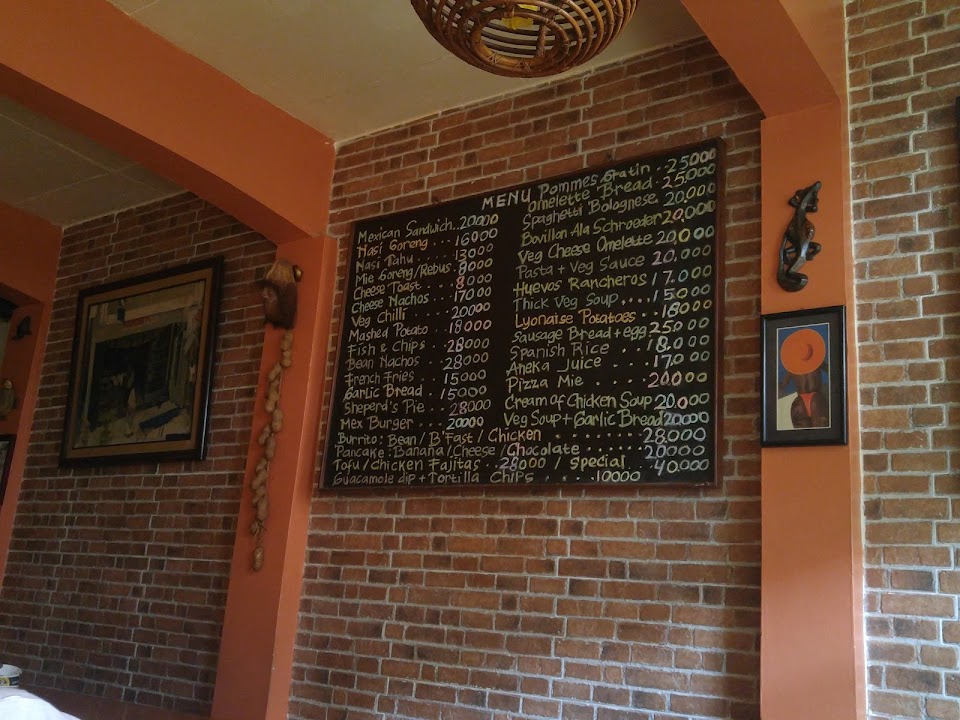 MENU
Mexican Sandwich..20000
Nasi Goreng ... 16000
Nasi Tahu ... 13000
Mie Goreng/Rebus. 8000
Cheese Toast... 8000
Cheese Nachos .. 17000
Veg Chilli ... 20000
Mashed Potato .. 18000
Fish & Chips .. 28000
Bean Nachos .. 28000
French Fries ... 15000
Garlic Bread .. 15000
Sheperd's Pie .. 28000
Mex Burger .... 20000
Pommes Gratin .. 25000
Omelette Bread. 25.000
Spaghetti Bolognese. 20.000
Bovillon Ala Schroeder 20,000
Veg Cheese Omelette 20,000
Pasta + Veg Sauce 20,000
Huevos Rancheros 17.000
Thick Veg Soup .... 15000
Lyonaise Potatoes .. 18000
Sausage Bread + egg 25.000
Spanish Rice ... 18.000
Aneka Juice .... 17.000
Pizza Mie ...... 20.000
Cream of Chicken Soup 20.000
Veg Soup + Garlic Bread 20000
Burrito: Bean / B'Fast / Chicken ........ 28.000
Pancake: Banana / Cheese / Chocolate ...... 20000
Tofu / Chicken Fajitas .. 28000 / Special ... 40.000
Guacamole dip + Tortilla Chips ..... 10000